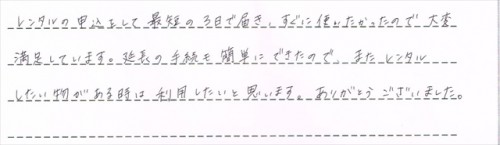 レンタルの申込をして最短の3日で届き、すぐに使いたかったので大変
満足しています。延長の手続も簡単にできたので、またレンタル
したい物がある時は利用したいと思います。ありがとうございました。